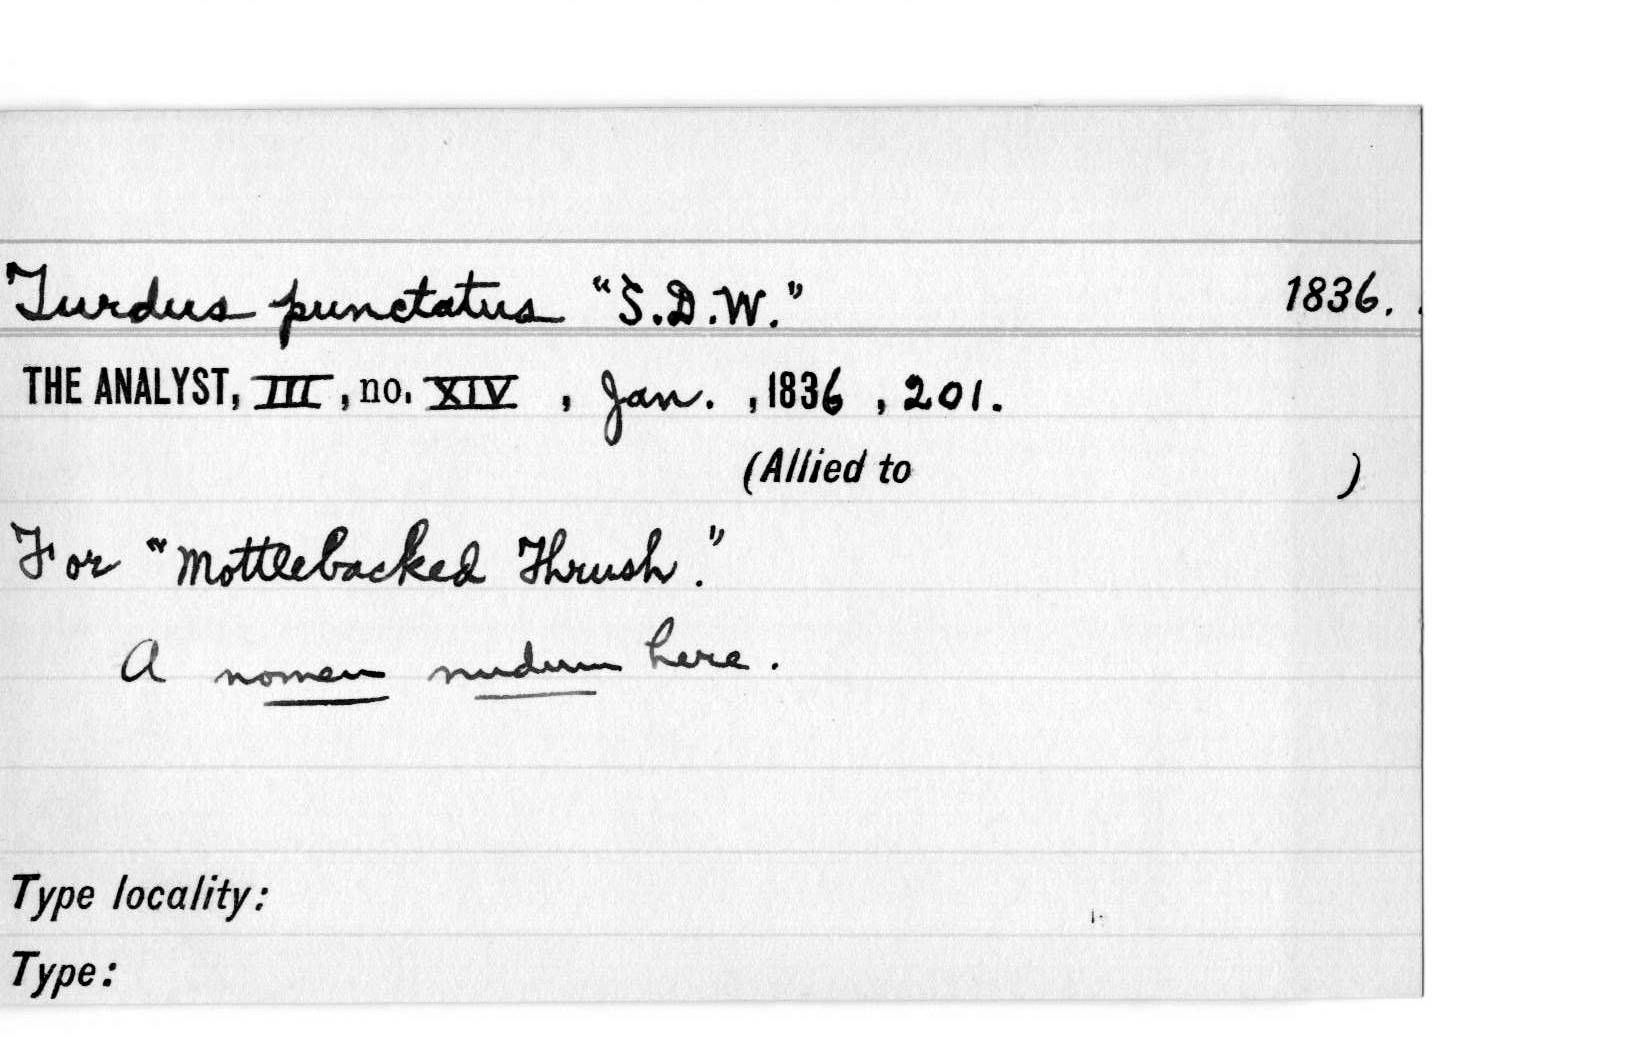 Turdus punctatus "S.D.W." 1836.
THE ANALYST, III, no. XIV, Jan., 1836, 201.
(Allied to )
For "Mottlebacked Thrush."
A nomen nudum here.
Type locality:
Type: